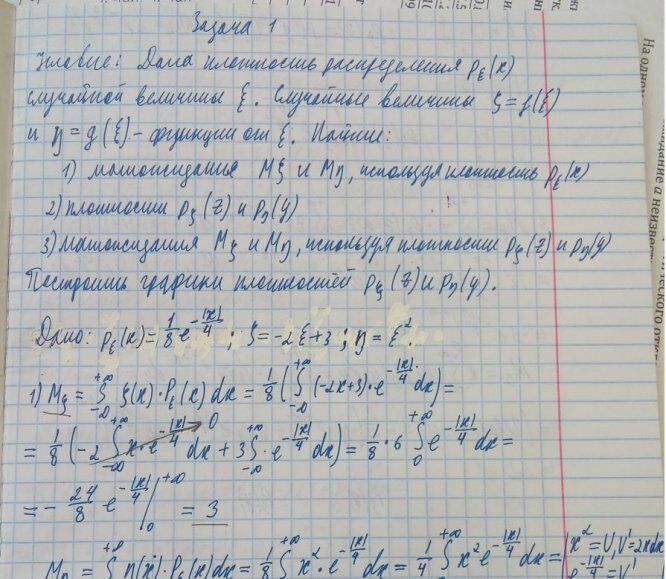 Задача 1
Условие: Дана плотность распределения p_ξ(x)
случайной величины ξ. Случайные величины ζ = f(ξ)
и η = g(ξ) - функции от ξ. Найти:
1) матожидания Mζ и Mη, используя плотность p_ξ(x)
2) плотности p_ζ(z) и p_η(y)
3) матожидания Mζ и Mη, используя плотности p_ζ(z) и p_η(y)
Построить графики плотностей p_ζ(z) и p_η(y).
Дано: p_ξ(x) = 1/8 e^{-|x|/4}; ζ = -2ξ+3; η = ξ².
1) Mζ = ∫_{-∞}^{+∞} ζ(x)·P_ξ(x) dx = 1/8 (∫_{-∞}^{+∞} (-2x+3)·e^{-|x|/4} dx) =
= 1/8 (-2 ∫_{-∞}^{+∞} x·e^{-|x|/4} dx → 0 + 3 ∫_{-∞}^{+∞} e^{-|x|/4} dx) = 1/8 · 6 ∫_0^{+∞} e^{-|x|/4} dx =
= - 24/8 e^{-|x|/4} |_0^{+∞} = 3
Mη = ∫_{-∞}^{+∞} η(x)·P_ξ(x) dx = 1/8 ∫_{-∞}^{+∞} x²·e^{-|x|/4} dx = 1/4 ∫_0^{+∞} x² e^{-|x|/4} dx = | x² = U, U' = 2x dx
e^{-|x|/4} = V'
На одном